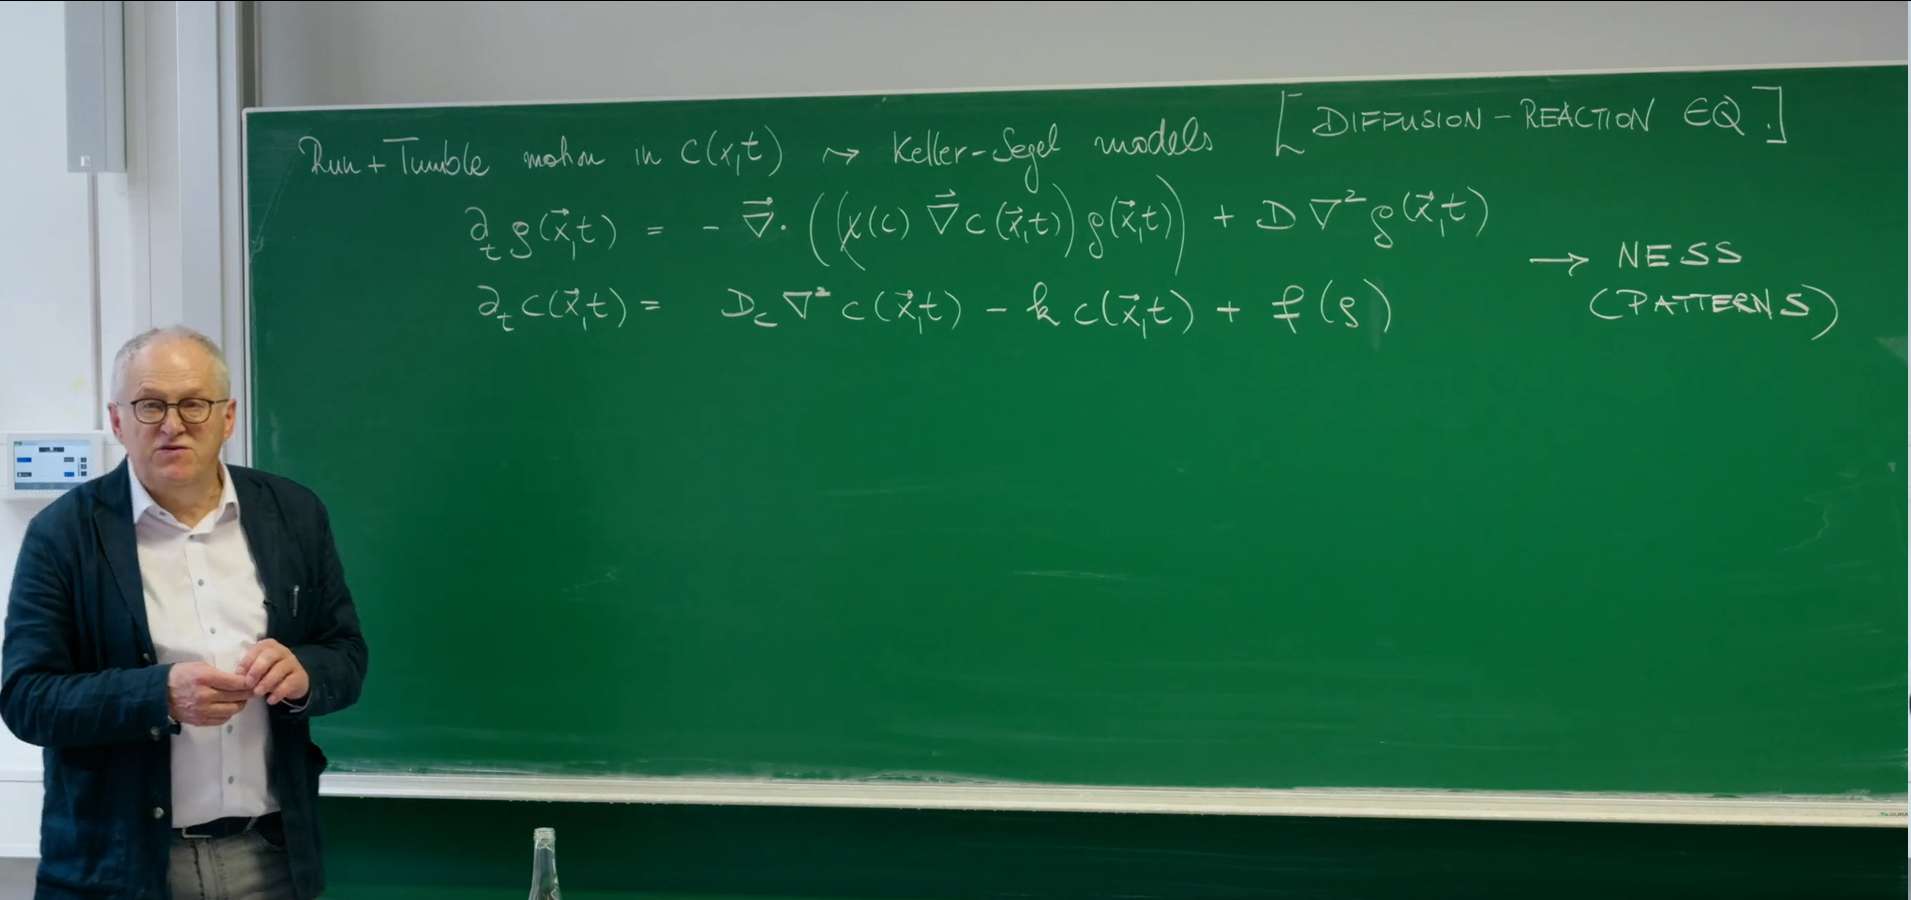 Run + Tumble motion in c(x,t) ⇝ Keller-Segel models [DIFFUSION - REACTION EQ.]
∂ₜ ρ(x⃗,t) = - ∇⃗· ((χ(c) ∇⃗ c(x⃗,t)) ρ(x⃗,t)) + D ∇² ρ(x⃗,t)
→ NESS
∂ₜ c(x⃗,t) = D_c ∇² c(x⃗,t) - k c(x⃗,t) + f(ρ)
(PATTERNS)